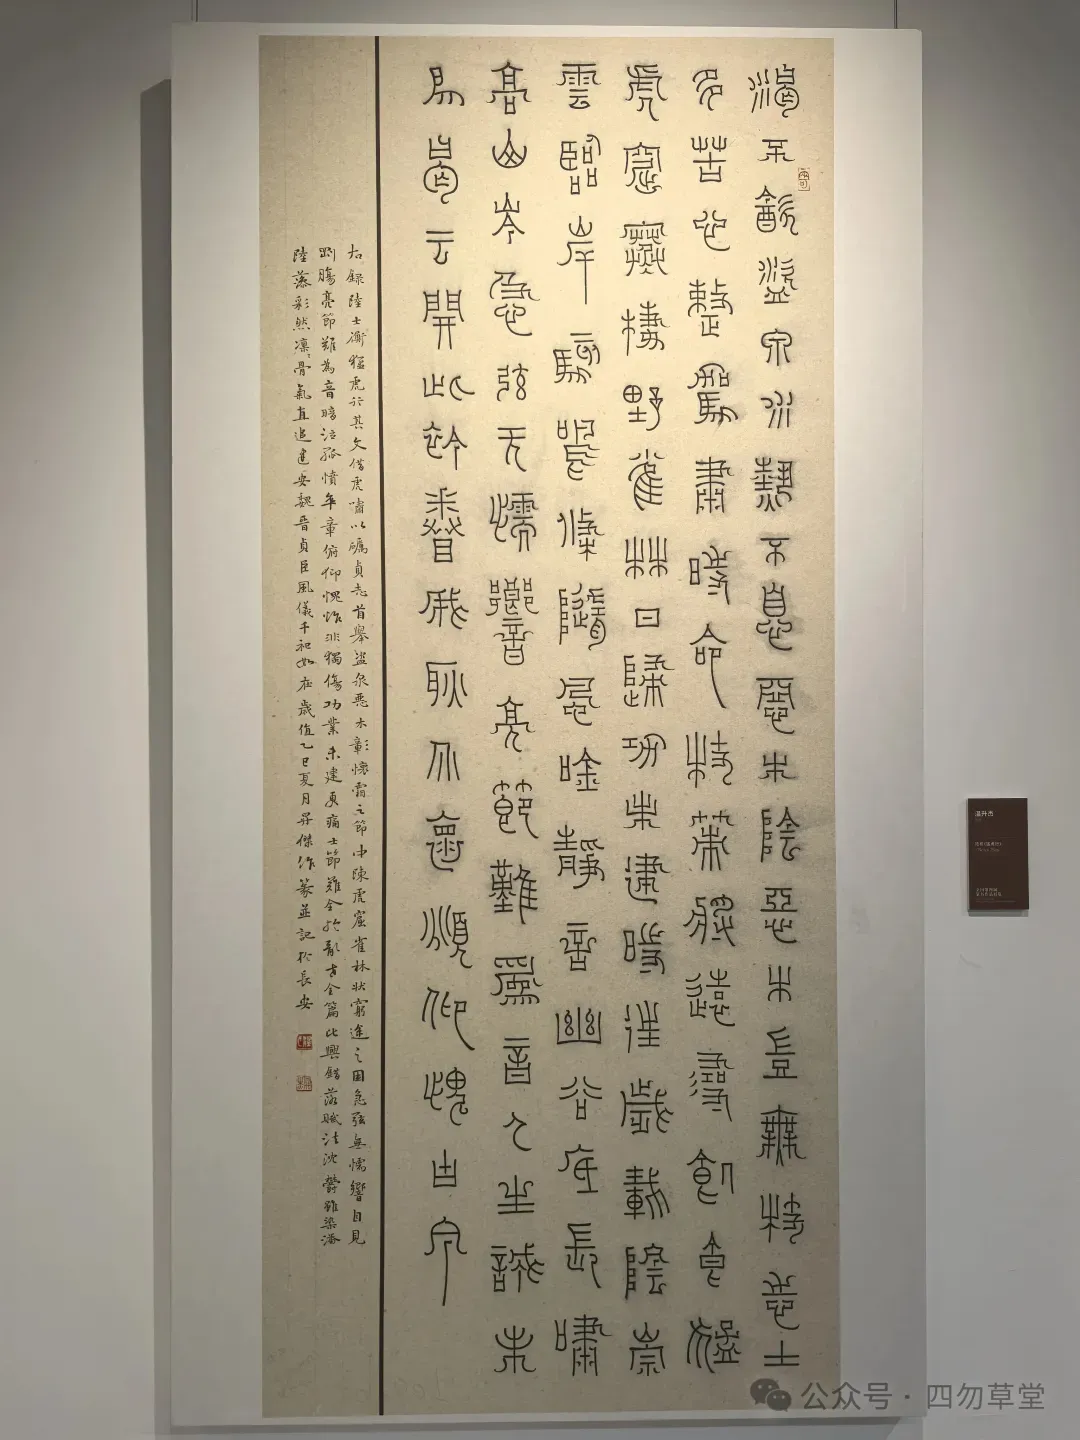 渴不飲盜泉水熱不息惡木陰惡木豈無枝志士
多苦心整駕肅時命杖策將遠尋飢食猛
虎窟寒棲野雀林日歸功未建時往歲載陰崇
雲臨岸駭鳴條隨風吟靜言幽谷底長嘯
高山岑急弦无懦響亮節難為音人生誠未
易曷云開此衿眷我耿介懷頫仰愧古今
右錄陸士衡猛虎行其文借虎嘯以礪貞志首舉盜泉惡木彰懷霜之節中陳虎窟雀林狀窮途之困急弦無懦響自見
剛腸亮節難為音暗泣孤憤卒章俯仰愧怍非獨傷功業未建更痛士節難全於全篇比興錯落賦法沈鬱雖染潘
陸藻彩然凜〻骨氣直追建安魏晉貞臣風儀千祀如在歲值乙巳夏月昇傑作篆並記於長安
温升杰
公众号·四勿草堂